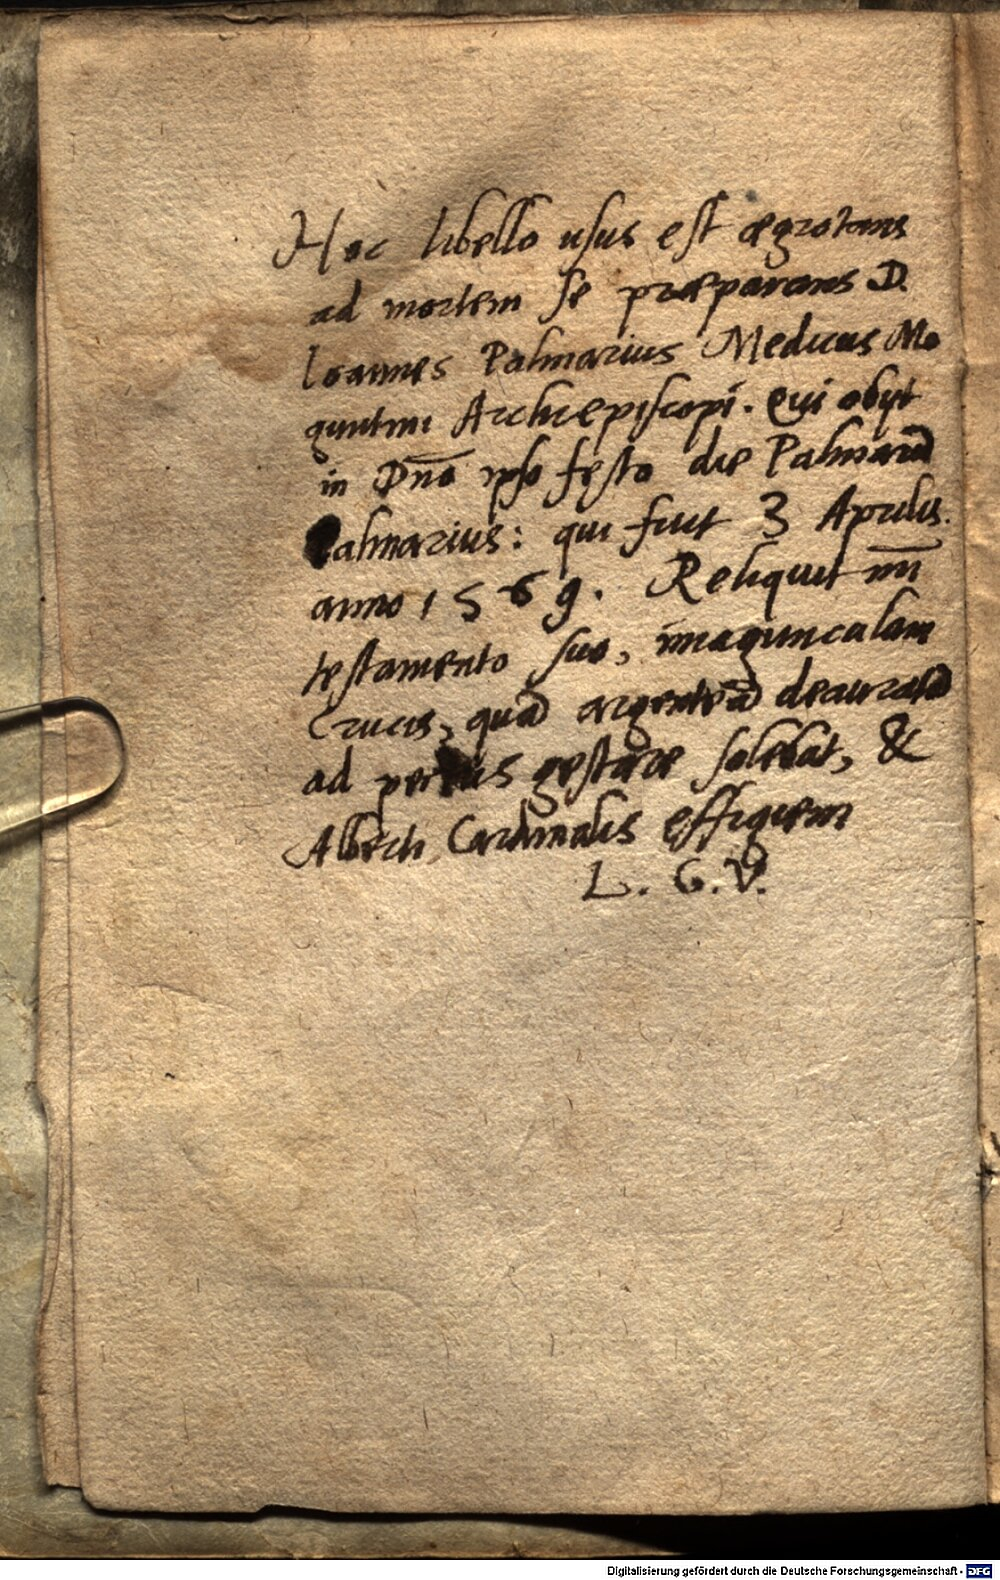 Hoc libello usus est ægrotans
ad mortem se præparans D.
Ioannes Palmarius Medicus Mo
guntini Archiepiscopi. Qui obijt
in Dño ipso festo die Palmarū
Palmarius: qui fuit 3 Aprilis.
anno 1569. Reliquit m̄
testamento suo, imagunculam
Crucis, quā argenteā deauratā
ad pectus gestare solebat, &
Alberti Cardinalis effigiem
L. G. V.
Digitalisierung gefördert durch die Deutsche Forschungsgemeinschaft - DFG